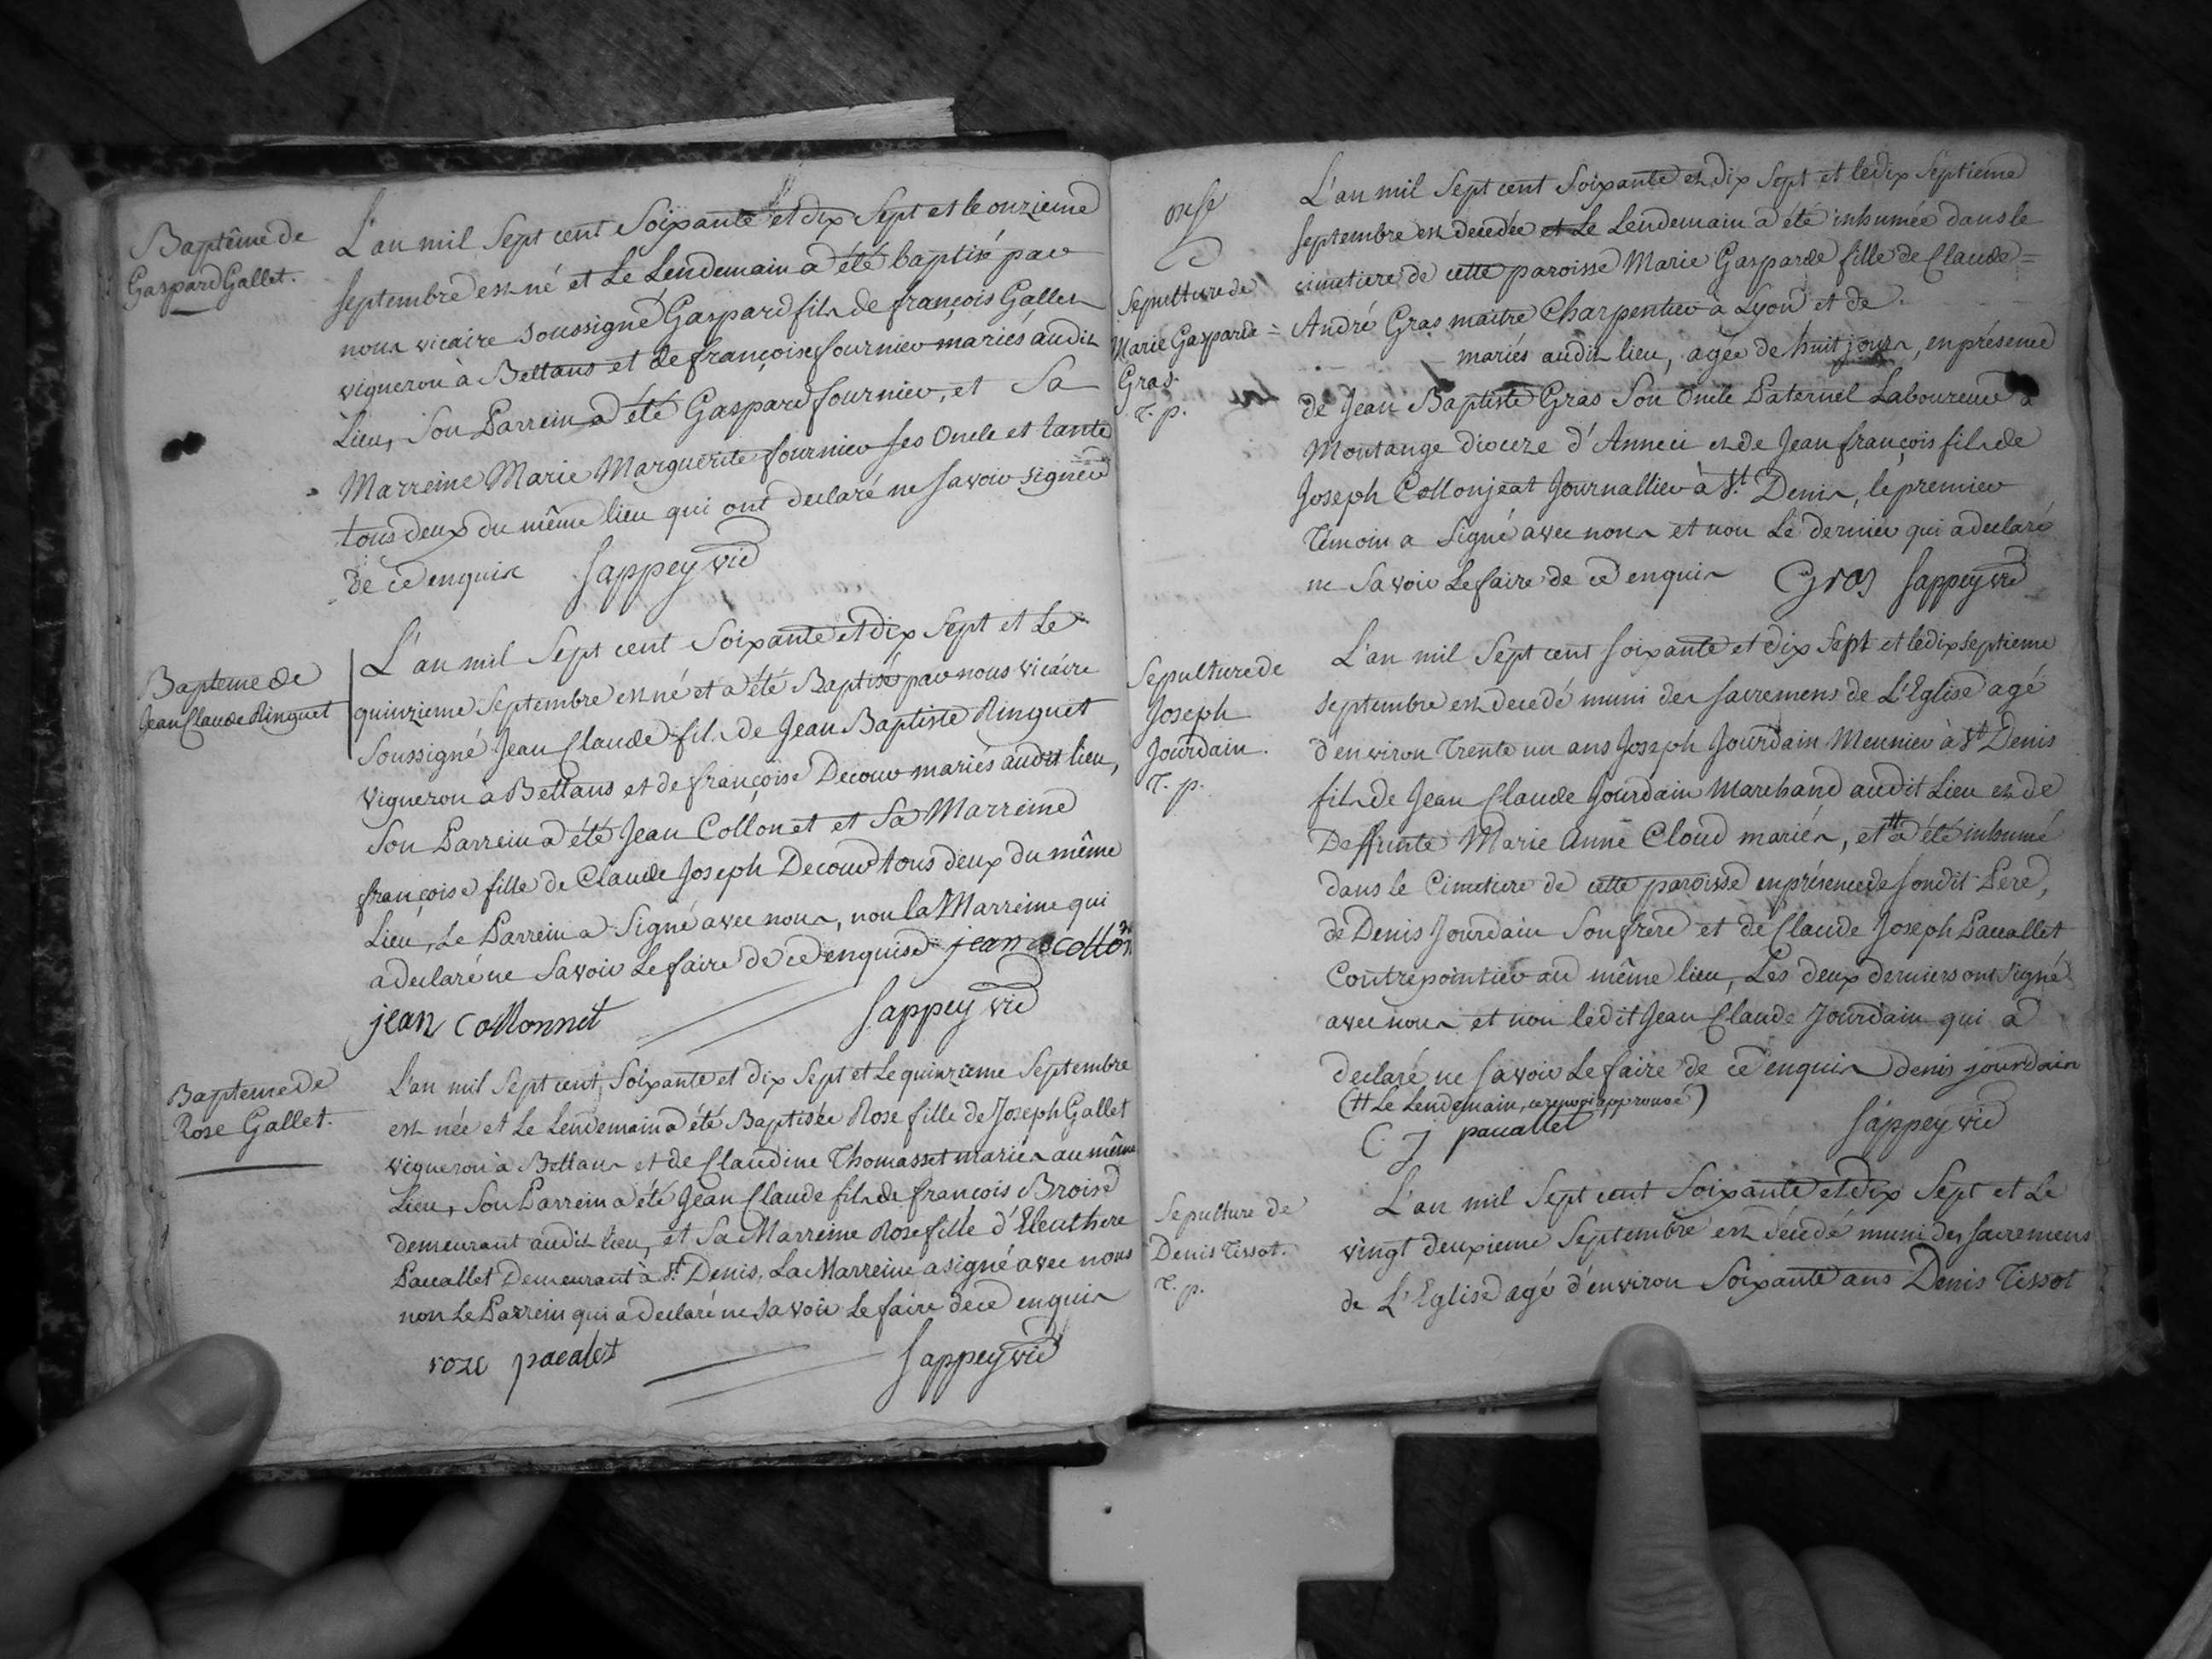 Baptême de
Gaspard Gallet.
L'an mil Sept cent Soixante et dix Sept et le onzieme
septembre est né et Le Lendemain a été baptisé par
nous vicaire soussigné Gaspard fils de françois Gallet
vigneron à Bettans et de françoise fournier mariés audit
Lieu, Son Parrein a été Gaspard fournier, et Sa
Marreine Marie Marguerite fournier ses Oncle et tante
tous deux du même lieu qui ont declaré ne savoir signer
de ce enquis Sappey vic
Bapteme de
Jean Claude Ringuet
L'an mil Sept cent Soixante et dix Sept et Le
quinzieme Septembre est né et a été Baptisé par nous vicaire
Soussigné Jean Claude fils de Jean Baptiste Ringuet
Vigneron à Bettans et de françoise Decour mariés audit lieu,
Son Parrein a été Jean Collonet et Sa Marreine
françoise fille de Claude Joseph Decour tous deux du même
Lieu, Le Parrein a Signé avec nous, non la Marreine qui
a declaré ne Savoir Le faire de ce enquise jean collon
jean collonnet Sappey vic
Bapteme de
Rose Gallet.
L'an mil Sept cent Soixante et dix Sept et Le quinzieme Septembre
est née et Le Lendemain a été Baptisée Rose fille de Joseph Gallet
vigneron à Bettans et de Claudine Thomasset mariés au même
Lieu, Son Parrein a été Jean Claude fils de francois Broise
demeurant audit lieu, et Sa Marreine Rose fille d'Eleuthere
Pacallet Demeurant à St. Denis, La Marreine a signé avec nous
non Le Parrein qui a declaré ne Savoir Le faire de ce enquis
roze pacalet Sappey vic
Sepulture de
Marie Gasparde =
Gras.
T. p.
L'an mil Sept cent Soixante et dix Sept et le dix Septieme
septembre est decedée et Le Lendemain a été inhumée dans le
cimetiere de cette paroisse Marie Gasparde fille de Claude =
André Gras maitre Charpentier à Lyon et de
mariés audit lieu, agée de huit jours, en présence
de Jean Baptiste Gras Son Oncle Paternel Laboureur à
Montange diocese d'Anneci et de Jean françois fils de
Joseph Collonjeat Journallier à St. Denis, le premier
Témoin a Signé avec nous et non Le dernier qui a declaré
ne Savoir Le faire de ce enquis Gras Sappey vic
Sepulture de
Joseph
Jourdain.
T. p.
L'an mil Sept cent soixante et dix Sept et le dix septieme
septembre est decedé muni des sacremens de L'Eglise agé
d'environ Trente un ans Joseph Jourdain Meunier à St Denis
fils de Jean Claude Jourdain Marchand audit Lieu et de
Deffunte Marie Anne Cloud mariés, et # a été inhumé
dans le Cimetiere de cette paroisse en présence de sondit Pere,
de Denis Jourdain Son frere et de Claude Joseph Pacallet
Contrepointier au même lieu, Les deux derniers ont signé
avec nous et non ledit Jean Claude Jourdain qui a
declaré ne savoir Le faire de ce enquis denis jourdain
(# Le Lendemain, ce renvoi approuvé)
C. J pacallet Sappey vic
Sepulture de
Denis Tissot.
T. p.
L'an mil Sept cent Soixante et dix Sept et Le
vingt deuxieme Septembre est décédé muni des sacremens
de L'Eglise agé d'environ Soixante ans Denis Tissot